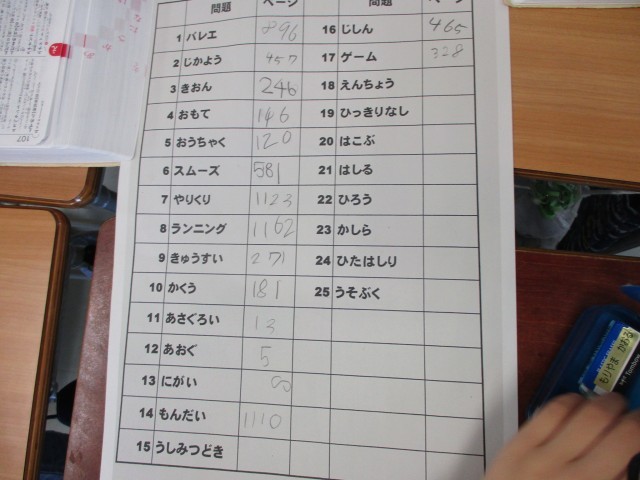 問題 ページ 問題 ページ
1 バレエ 896 16 じしん 465
2 じかよう 457 17 ゲーム 328
3 きおん 246 18 えんちょう
4 おもて 146 19 ひっきりなし
5 おうちゃく 120 20 はこぶ
6 スムーズ 581 21 はしる
7 やりくり 1123 22 ひろう
8 ランニング 1162 23 かしら
9 きゅうすい 271 24 ひたはしり
10 かくう 181 25 うそぶく
11 あさぐろい 13
12 あおぐ 5
13 にがい
14 もんだい 1110
15 うしみつどき
107